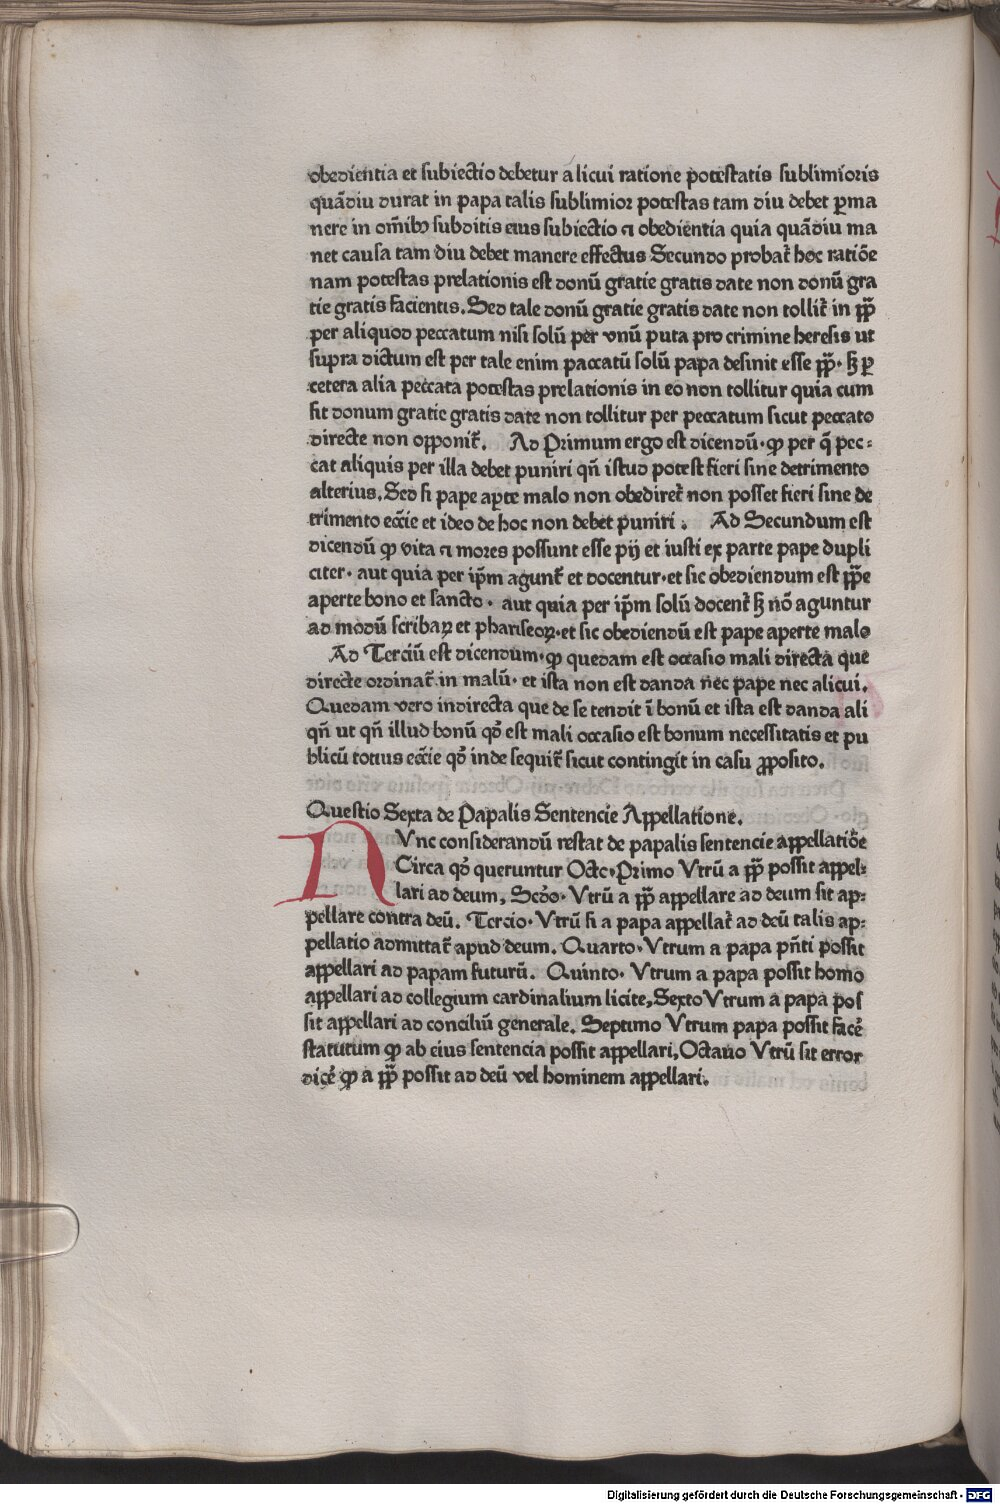 obedientia et subiectio debetur alicui ratione potestatis sublimioris
quādiu durat in papa talis sublimior potestas tam diu debet ꝑma
nere in om̄ibꝰ subditis eius subiectio ⁊ obedientia quia quādiu ma
net causa tam diu debet manere effectus Secundo probat̄ hoc ratiōe
nam potestas prelationis est donū gratie gratis date non donū gra
tie gratis facientis. Sed tale donū gratie gratis date non tollit̄ in pp̄
per aliquod peccatum nisi solū per vnū puta pro crimine heresis ut
supra dictum est per tale enim paccatū solū papa desinit esse pp̄. sꝫ ꝑ
cetera alia peccata potestas prelationis in eo non tollitur quia cum
sit donum gratie gratis date non tollitur per peccatum sicut peccato
directe non opponit̄. Ad Primum ergo est dicendū. ꝙ per q̄ pec-
cat aliquis per illa debet puniri qn̄ istud potest fieri sine detrimento
alterius. Sed si pape aꝑte malo non obediret̄ non posset fieri sine de
trimento ecc̄ie et ideo de hoc non debet puniri. Ad Secundum est
dicendū ꝙ vita ⁊ mores possunt esse pij et iusti ex parte pape dupli
citer. aut quia per ip̄m agunt̄ et docentur. et sic obediendum est pp̄e
aperte bono et sancto. aut quia per ip̄m solū docent̄ sꝫ nō aguntur
ad modū scribaꝝ et phariseoꝝ. et sic obediendū est pape aperte malo
Ad Terciū est dicendum. ꝙ quedam est occasio mali directa que
directe ordinat̄ in malū. et ista non est danda nec pape nec alicui.
Quedam vero indirecta que de se tendit ī bonū et ista est danda ali
qn̄ ut qn̄ illud bonū qd̓ est mali occasio est bonum necessitatis et pu
blicū totius ecc̄ie qd̓ inde sequit̄ sicut contingit in casu ꝓposito.
Questio Sexta de Papalis Sentencie Appellatione.
NVnc considerandū restat de papalis sentencie appellatiōe
Circa qd̓ queruntur Octo. Primo Vtrū a pp̄ possit appel-
lari ad deum, Scd̓o. Vtrū a pp̄ appellare ad deum sit ap-
pellare contra deū. Tercio. Vtrū si a papa appellat̄ ad deū talis ap-
pellatio admittat̄ apud deum. Quarto. Vtrum a papa pn̄ti possit
appellari ad papam futurū. Quinto. Vtrum a papa possit homo
appellari ad collegium cardinalium licite, Sexto Vtrum a papa pos
sit appellari ad conciliū generale. Septimo Vtrum papa possit facē
statutum ꝙ ab eius sentencia possit appellari, Octauo Vtrū sit error
dicē ꝙ a pp̄ possit ad deū vel hominem appellari.
Digitalisierung gefördert durch die Deutsche Forschungsgemeinschaft - DFG